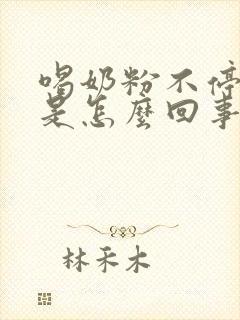 喝奶粉不停
是怎麼回事
林禾木